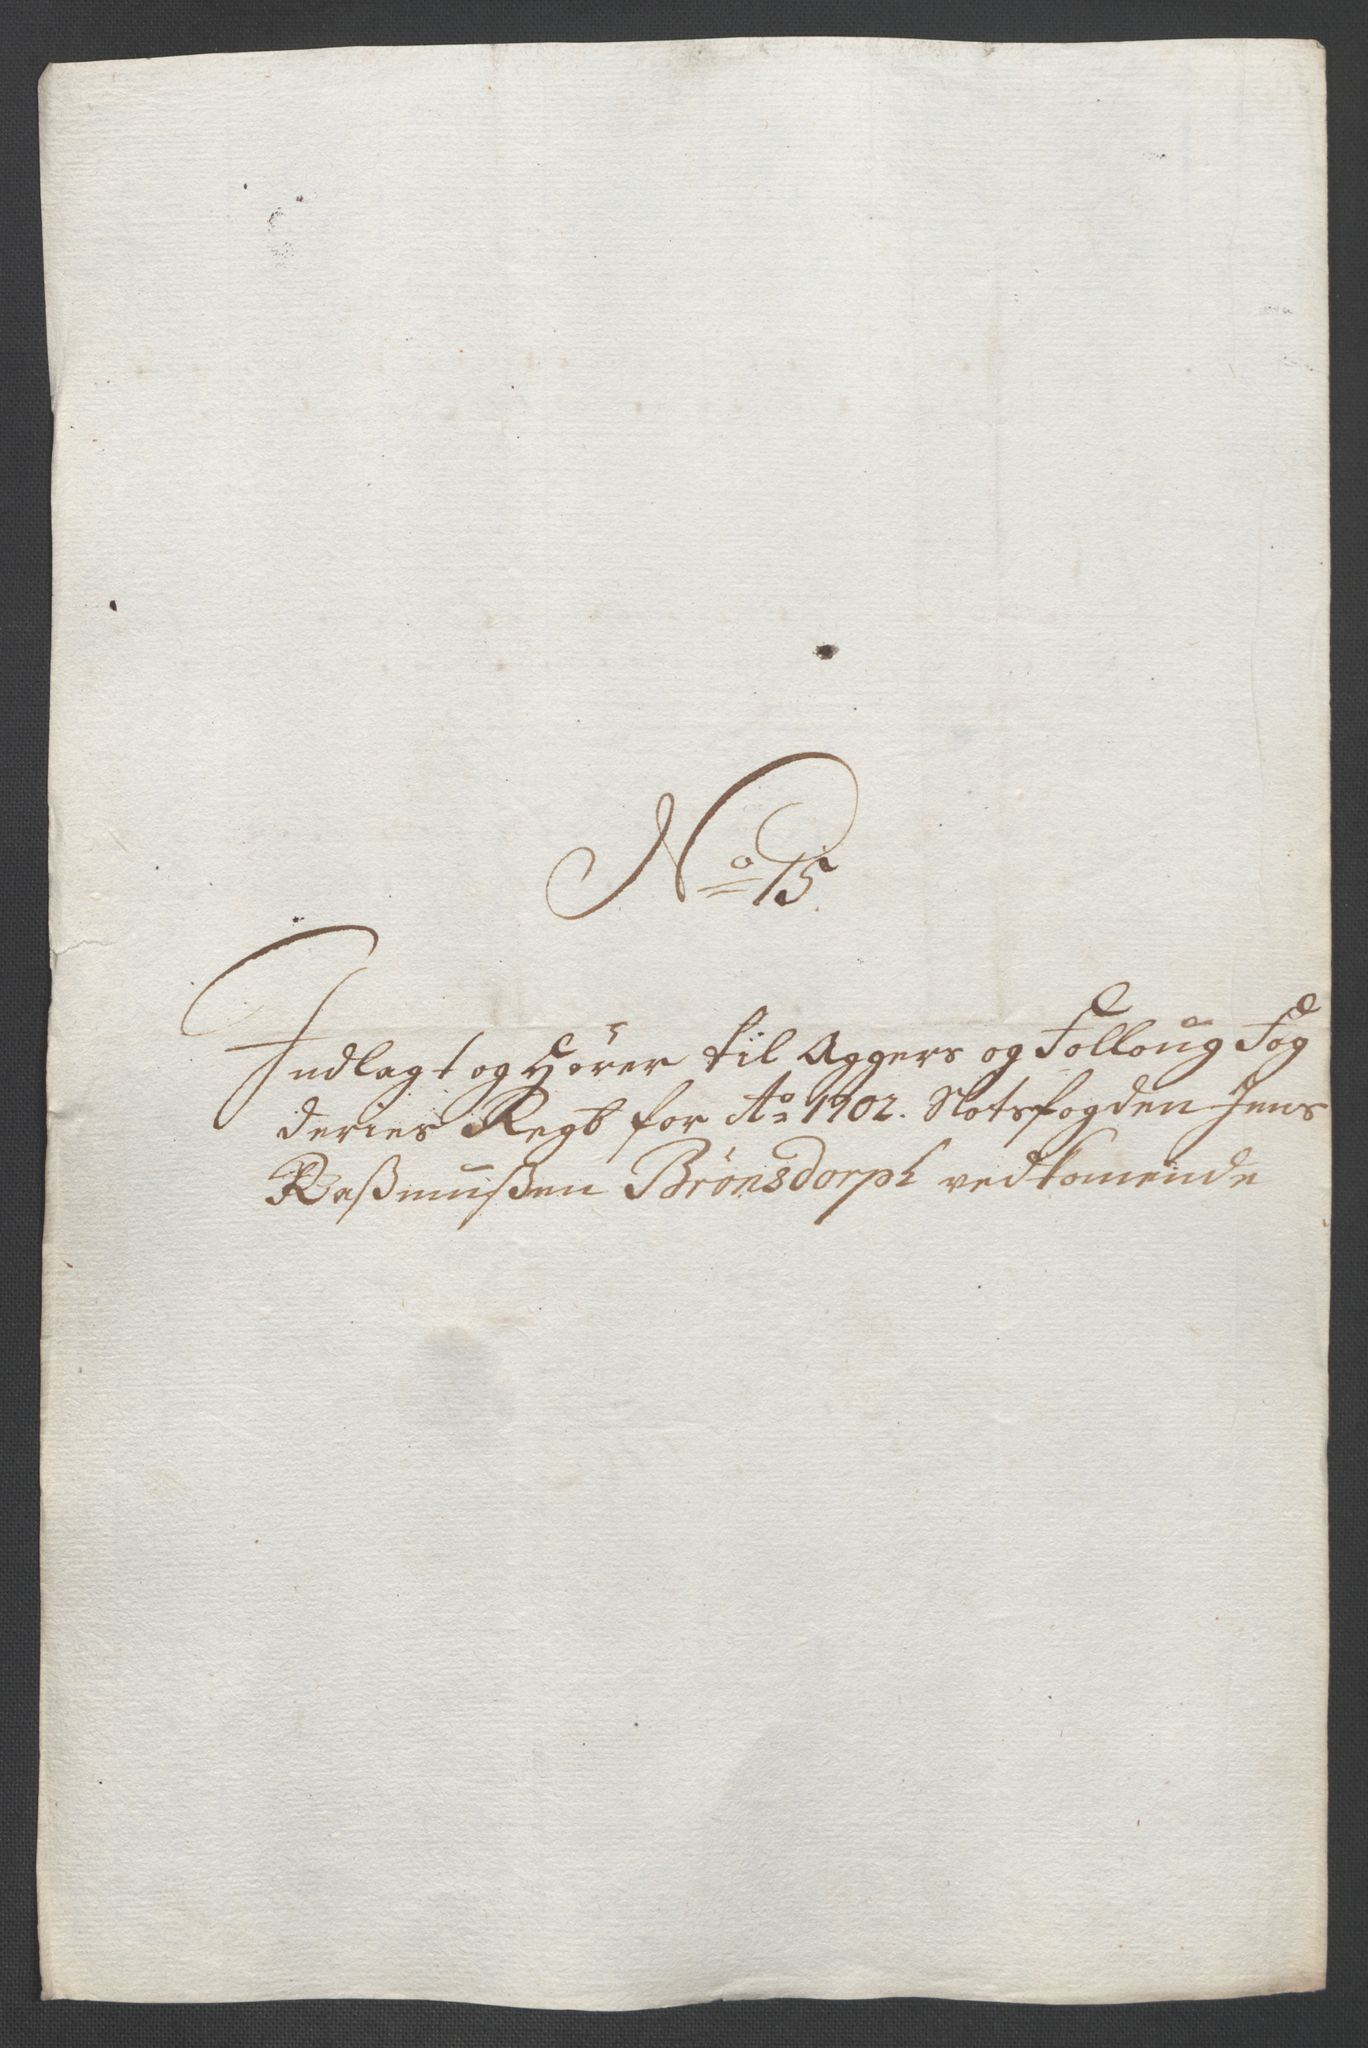 No 15.
Indlagt og Hörer til Aggers og Folloug Fog
deries Regb for Ao 1702. Slotsfogden Jens
Raßmußen Brönsdorph vedkomende